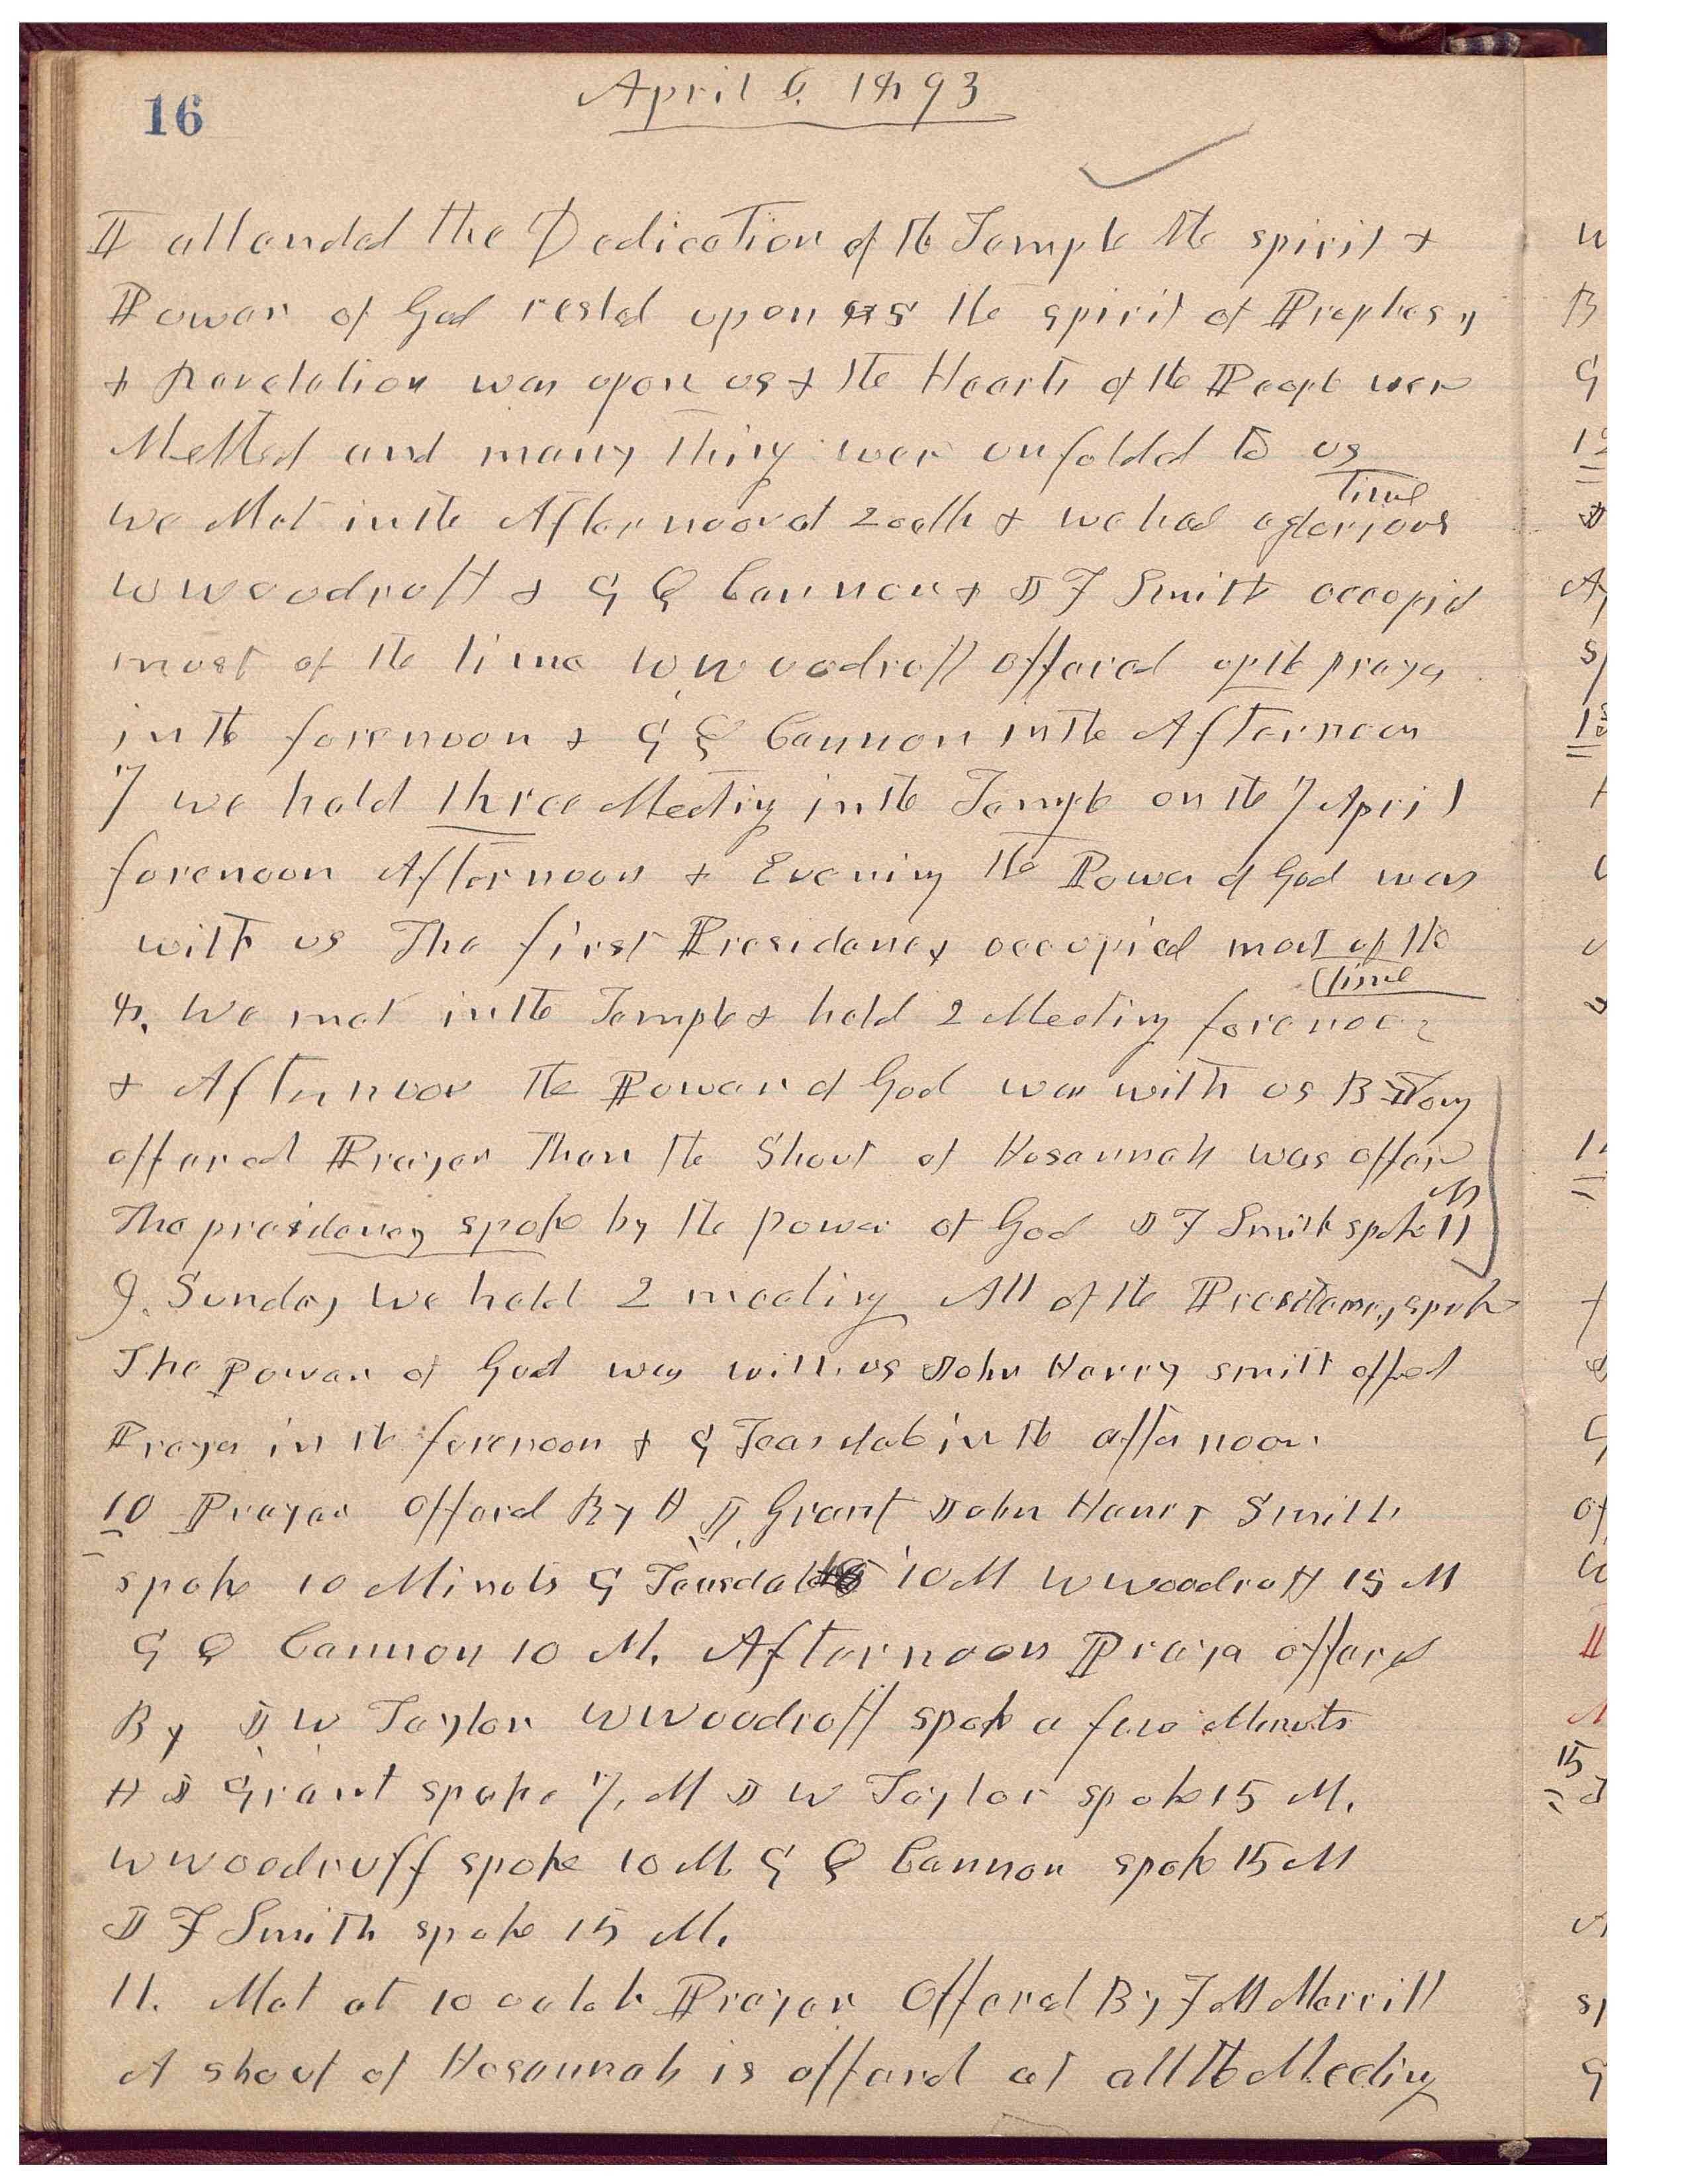 16
April 6. 1893
I attended the Dedication of the Temple the spirit &
Power of God rested upon us the spirit of Prophesy
& Revelation was upon us & the Hearts of the People wer
Melted and many thing wer unfolded to us
time
we Met in the Afternoon at 2 oclk & we had a glorious
W Woodruff & G Q Cannon & J F Smith occupied
most of the time W Woodruff offered up the prayer
in the forenoon & G Q Cannon in the Afternoon
7 we held three Meeting in the Temple on the 7 April
forenoon Afternoon & Evening the Power of God was
with us The first Presidency occupied most of the
time
8. We met in the Temple & held 2 Meeting forenoon
& Afternoon The Power of God was with us B Young
offered Prayer Then the Shout of Hosannah was offerd
The presidency spoke by the power of God J F Smith spoke 11
M
9. Sunday we held 2 meeting All of the Presidency spoke
The Power of God was with us John Henry Smith offed
Prayer in the forenoon & G Teasdale in the afternoon
10 Prayer Offerd By H J Grant John Henry Smith
spoke 10 Minuts G Teasdale 10 M W Woodruff 15 M
G Q Cannon 10 M. Afternoon Prayer offerd
By J W Taylor W Woodruff spoke a few Minuts
H J Grant spoke 7. M J W Taylor spoke 15 M.
W Woodruff spoke 10 M. G Q Cannon spoke 15 M
J F Smith spoke 15 M.
11. Met at 10 oclock Prayer Offered By F M Merrill
A shout of Hosannah is offered at all the Meeting